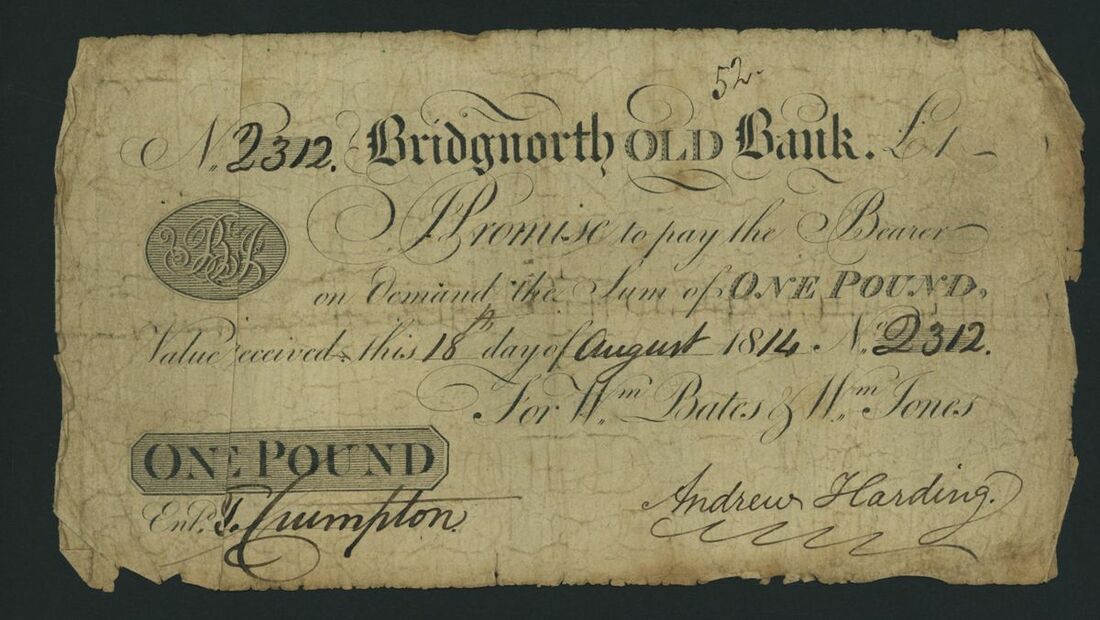 52.
No. 2312. Bridgnorth OLD Bank. £1 –
I Promise to pay the Bearer
on Demand the Sum of ONE POUND,
Value received this 18th day of August 1814. No. 2312.
For Wm. Bates & Wm. Jones
ONE POUND
Entd. T. Crumpton. Andrew Harding.